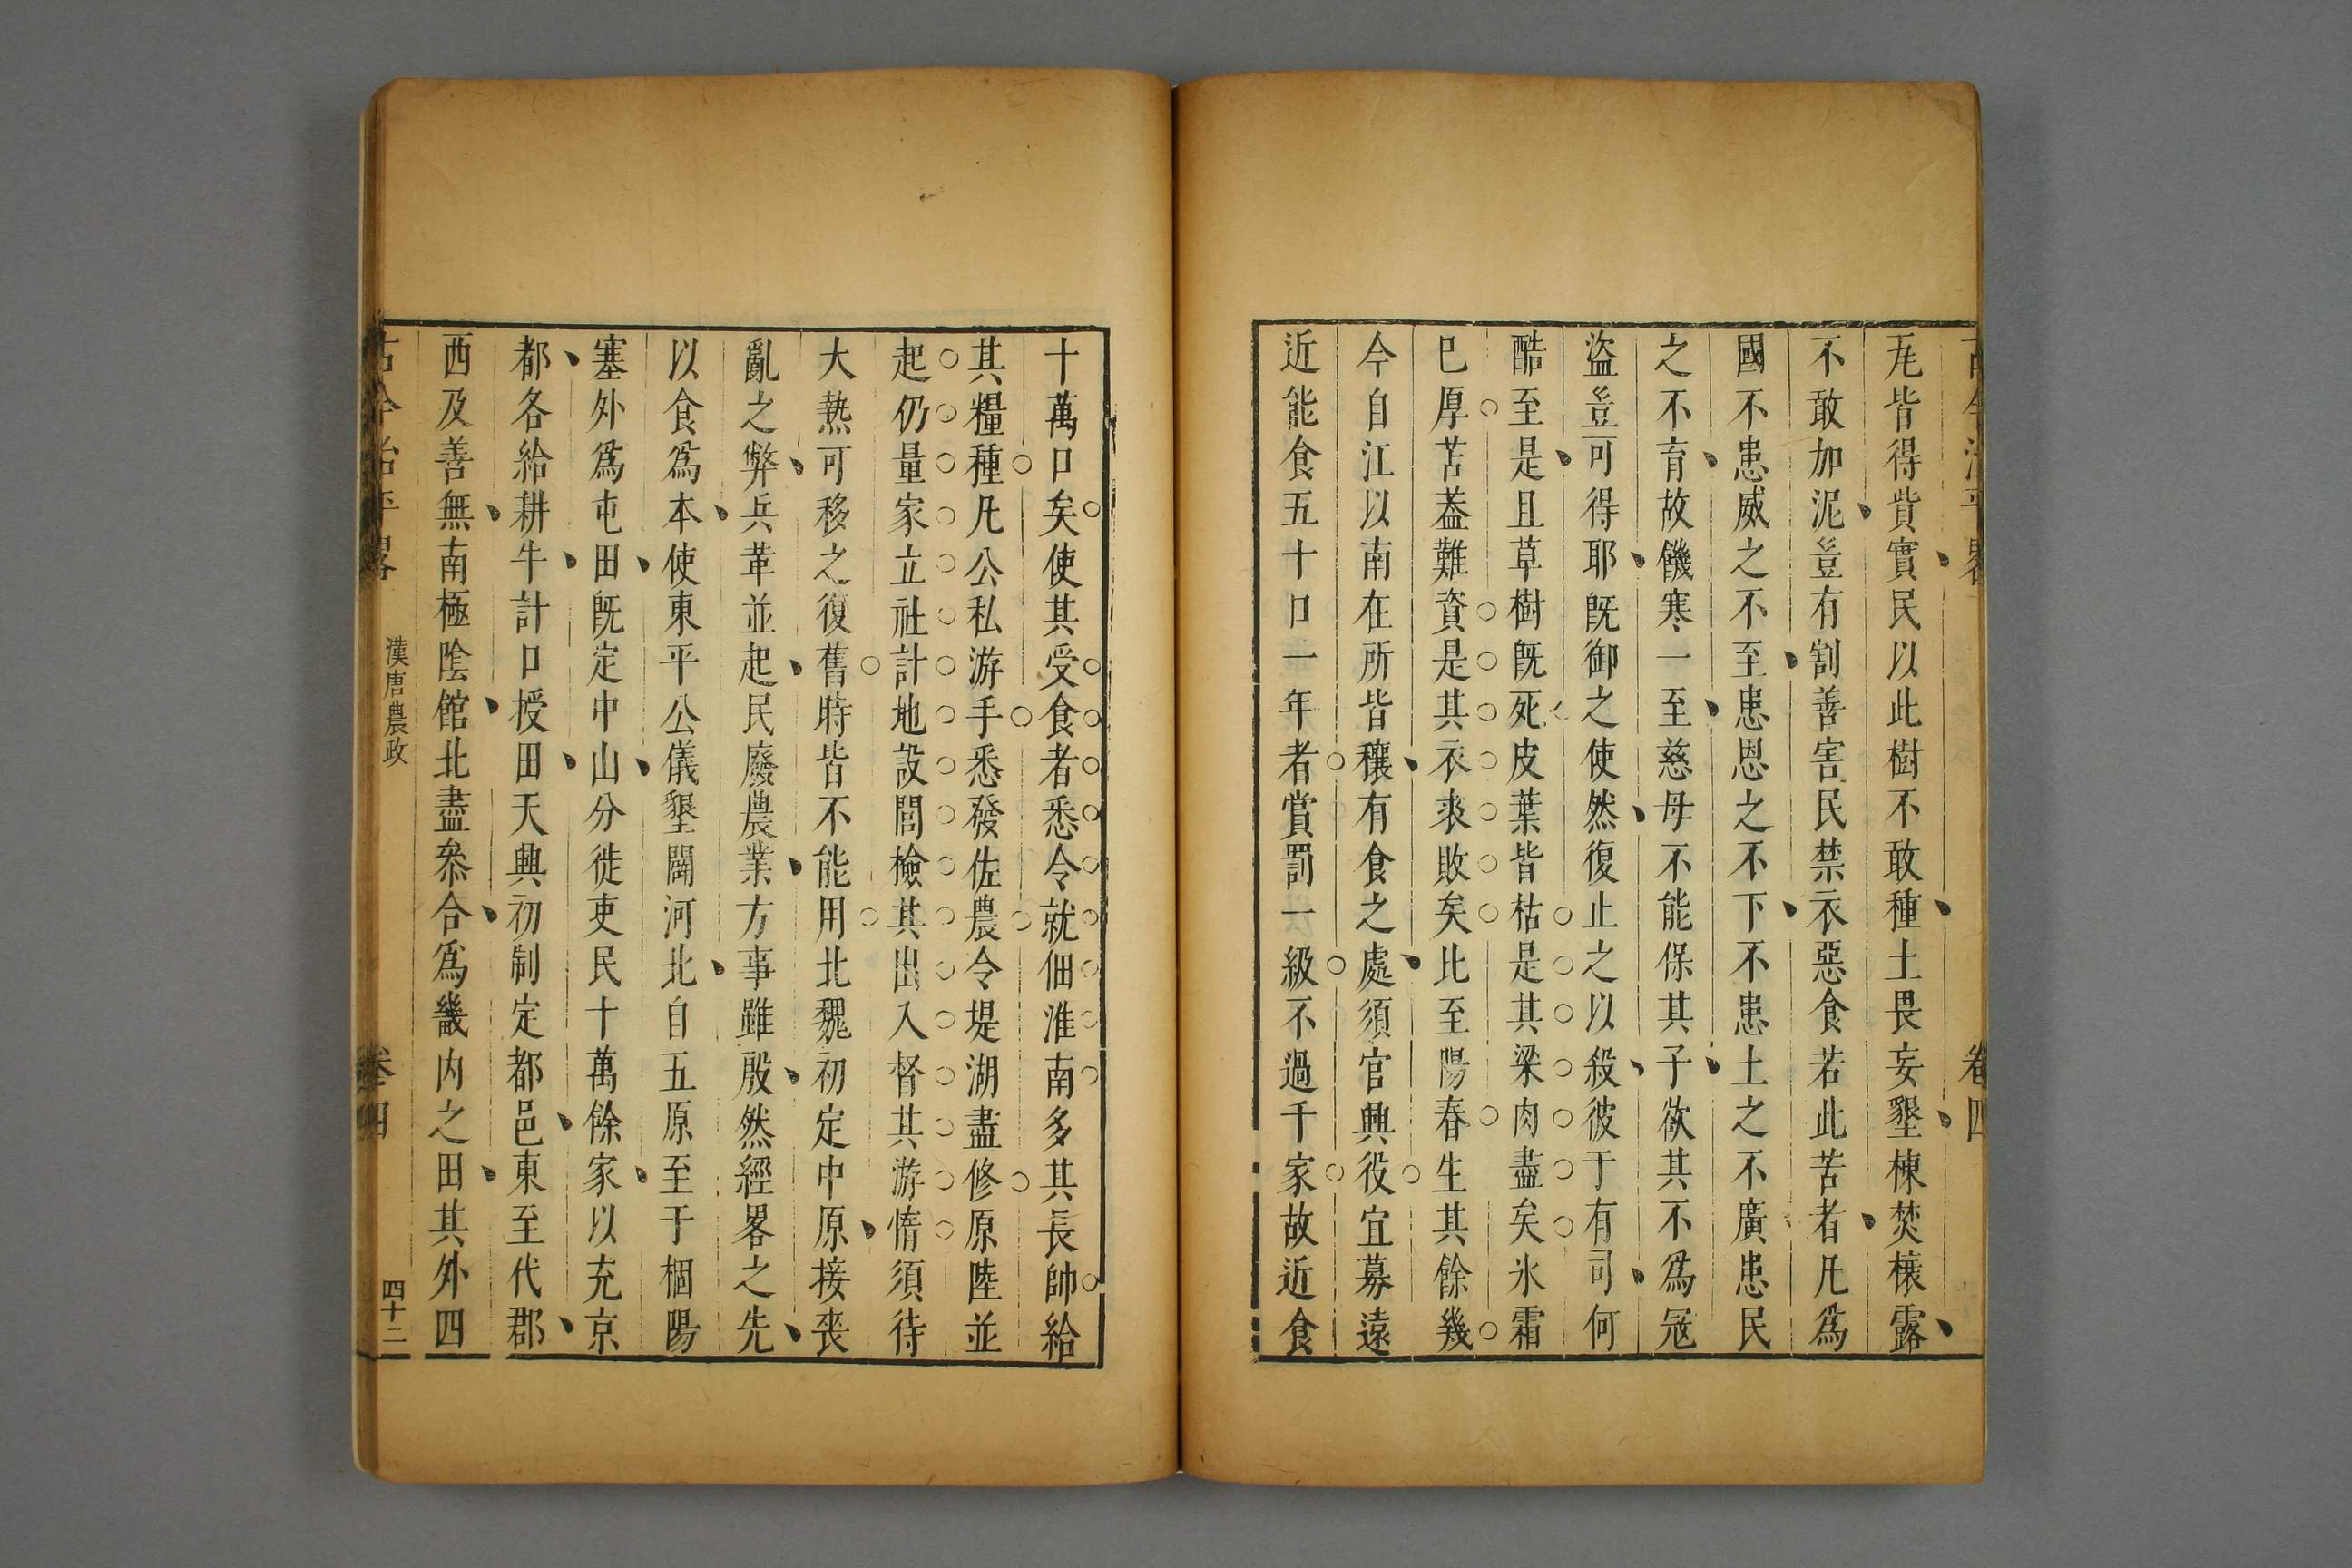 古今治平畧
卷四
尾皆得貲實民以此樹不敢種土畏妄墾棟焚榱露
不敢加泥豈有割善害民禁衣惡食若此苦者凡爲
國不患威之不至患恩之不下不患土之不廣患民
之不育故饑寒一至慈母不能保其子欲其不爲冦
盜豈可得耶既御之使然復止之以殺彼于有司何
酷至是且草樹既死皮葉皆枯是其梁肉盡矣氷霜
巳厚苫蓋難資是其衣裘敗矣比至陽春生其餘幾
今自江以南在所皆穰有食之處須官興役宜募遠
近能食五十口一年者賞罰一級不過千家故近食
十萬口矣使其受食者悉令就佃淮南多其長帥給
其糧種凡公私游手悉發佐農令堤湖盡修原陸並
起仍量家立社計地設閭檢其出入督其游惰須待
大熱可移之復舊時皆不能用北魏初定中原接喪
亂之弊兵革並起民廢農業方事雖殷然經畧之先
以食爲本使東平公儀墾闢河北自五原至于棝陽
塞外爲屯田既定中山分徙吏民十萬餘家以充京
都各給耕牛計口授田天興初制定都邑東至代郡
西及善無南極陰館北盡叅合爲畿内之田其外四
古今治平畧
漢唐農政
卷四
四十二